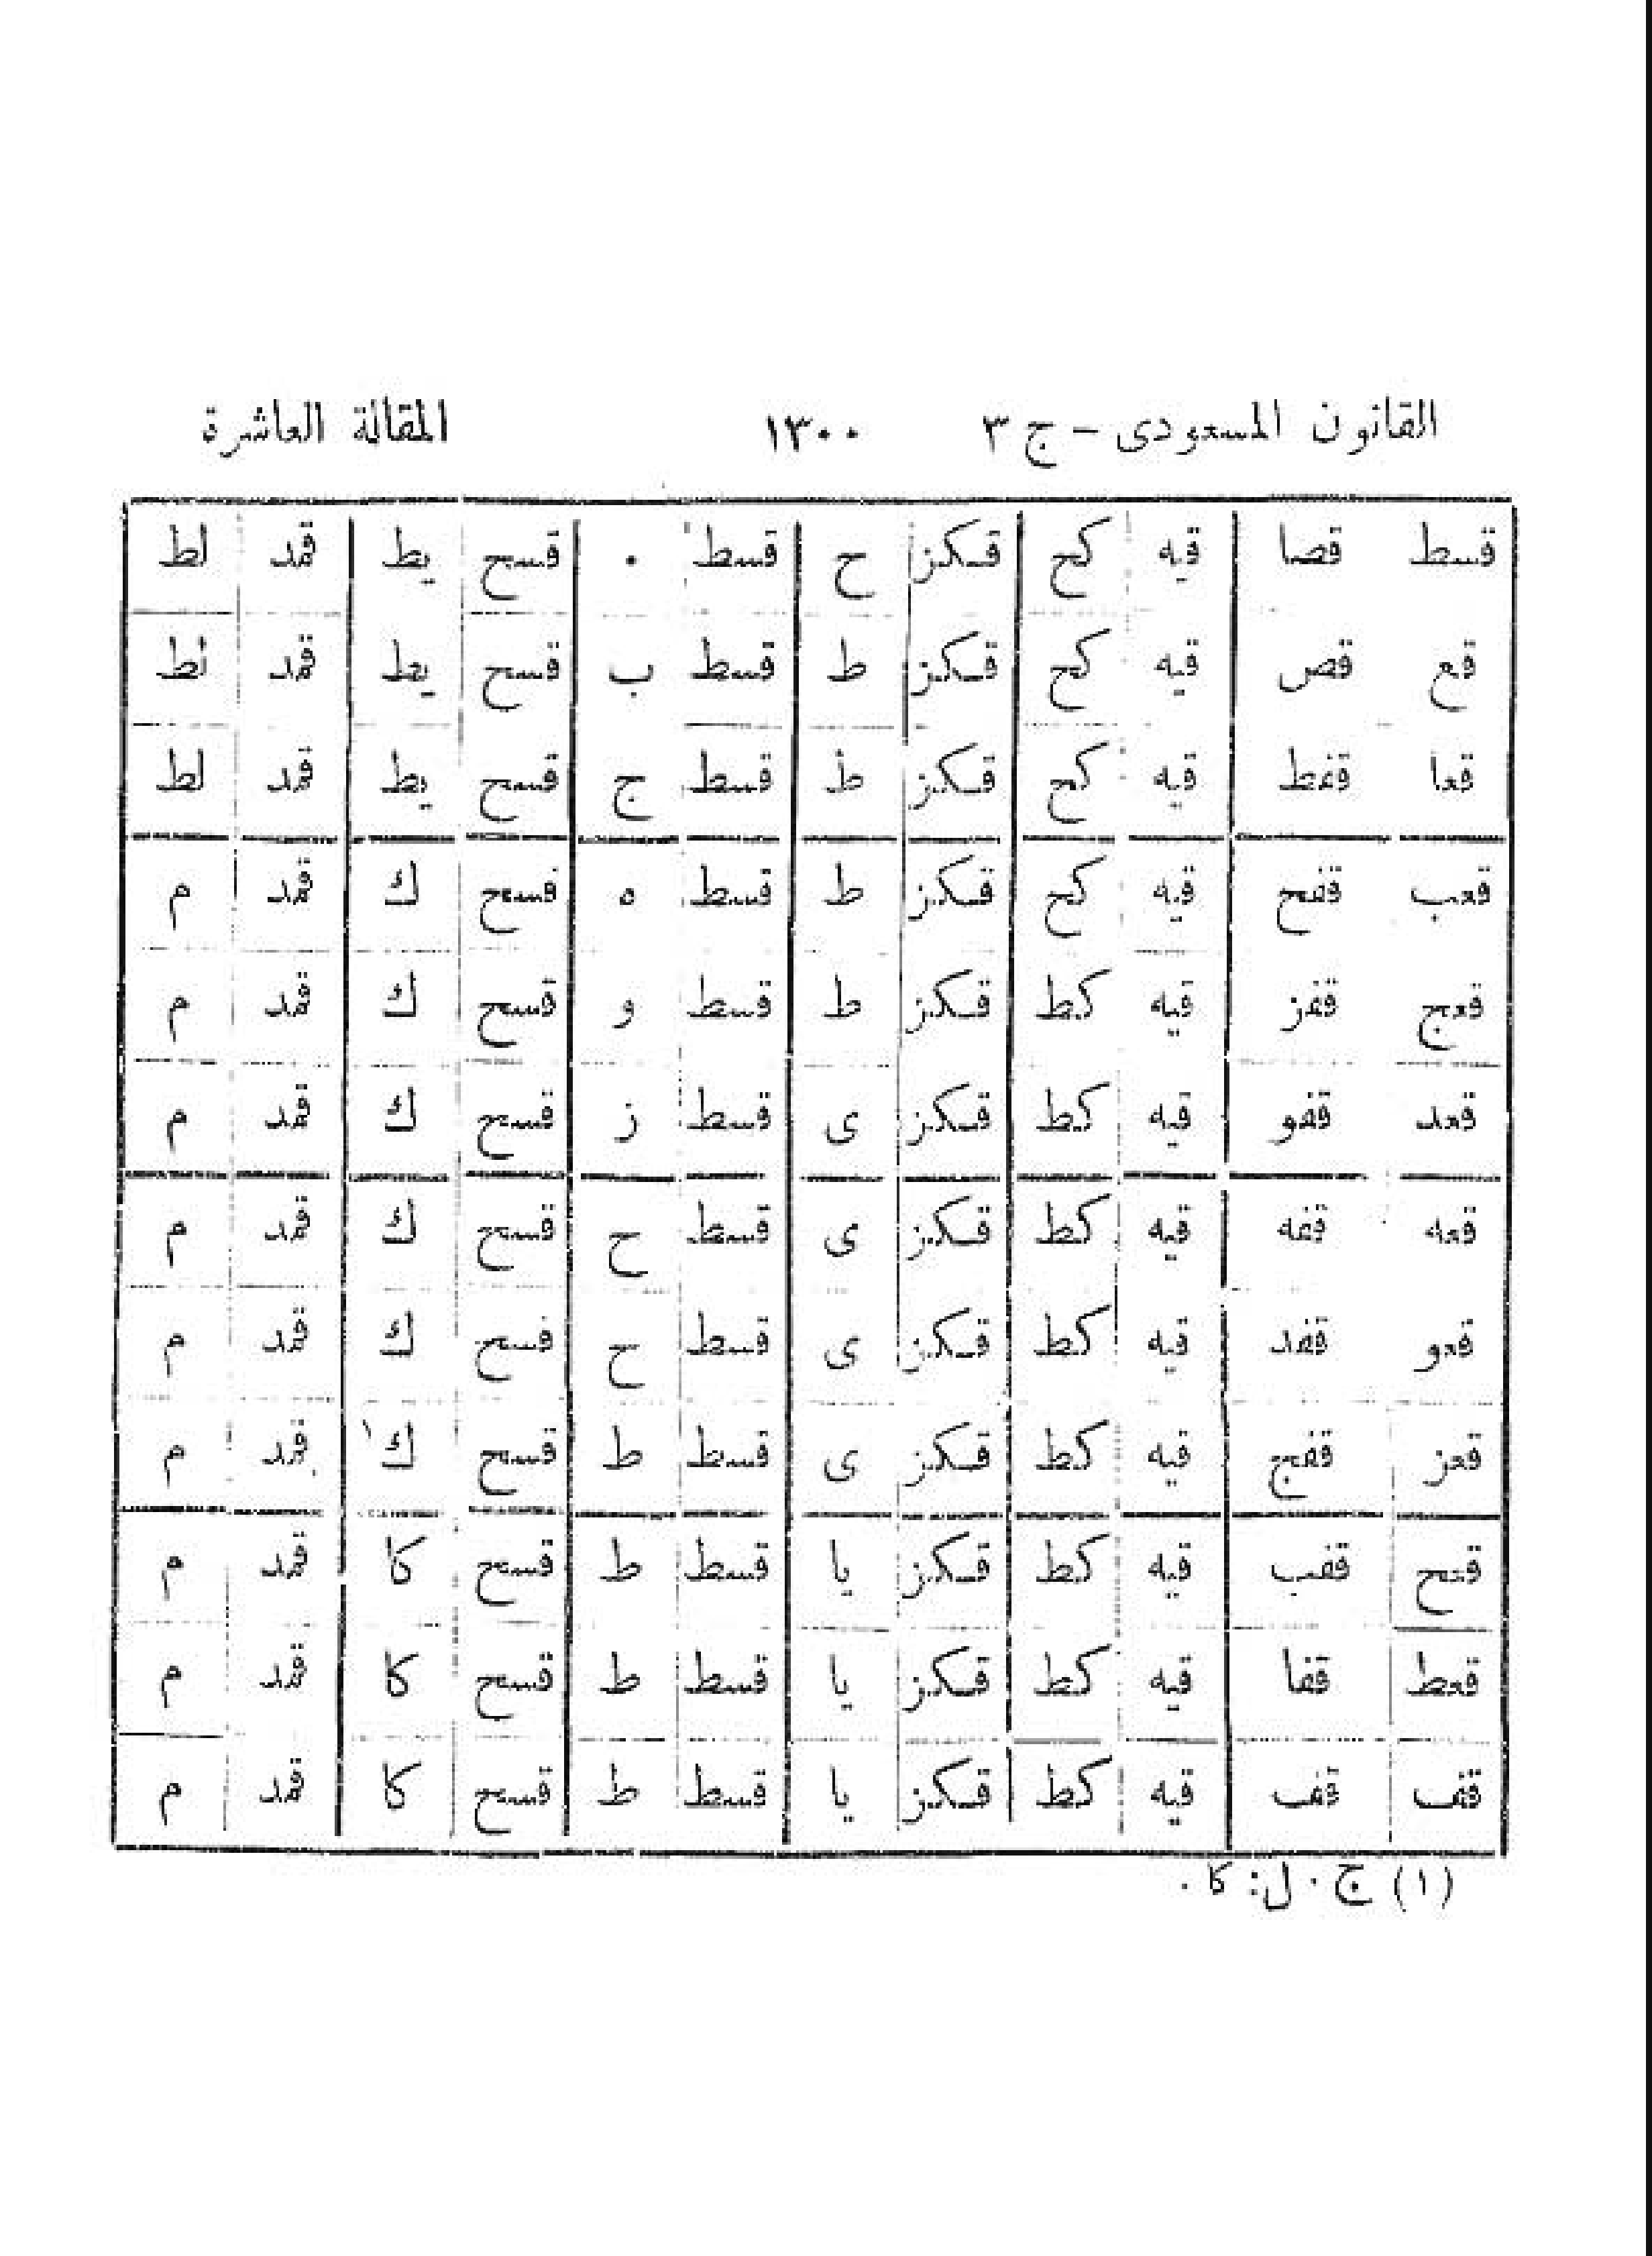 القانون المسعودى - ج ٣ ١٣٠٠ المقالة العاشرة
قسط قصا قيه كح قسكز ح قسط ٠ قسح يط قمد لط
قع قص قيه كح قسكز ط قسط ب قسح يط قمد لط
قعا قفط قيه كح قسكز ط قسط ج قسح يط قمد لط
قعب قفح قيه كح قسكز ط قسط ه قسح ك قمد م
قعج قفز قيه كط قسكز ط قسط و قسح ك قمد م
قعد قفو قيه كط قسكز ى قسط ز قسح ك قمد م
قعه قفه قيه كط قسكز ى قسط ح قسح ك قمد م
قعو قفد قيه كط قسكز ى قسط ح قسح ك قمد م
قعز قفج قيه كط قسكز ى قسط ط قسح ك قمد م
قعح قفب قيه كط قسكز يا قسط ط قسح كا قمد م
قعط قفا قيه كط قسكز يا قسط ط قسح كا قمد م
قف قف قيه كط قسكز يا قسط ط قسح كا قمد م
(١) ج ٠ ل: كا ٠